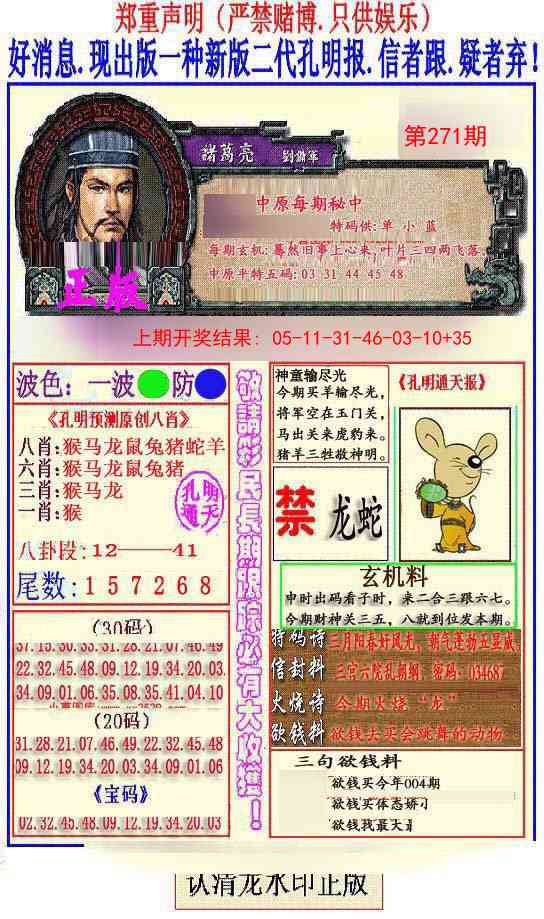 郑重声明（严禁赌博.只供娱乐）
好消息.现出版一种新版二代孔明报.信者跟.疑者弃!
第271期
諸葛亮 劉備軍
中原每期秘中
特码供:单 小 蓝
每期玄机:蓦然旧事上心来,叶片三四两飞落.
中原平特五码: 03 31 44 45 48
正版
上期开奖结果: 05-11-31-46-03-10+35
波色: 一波 防
《孔明预测原创八肖》
八肖:猴马龙鼠兔猪蛇羊
六肖:猴马龙鼠兔猪
三肖:猴马龙
一肖:猴
孔明通天
八卦段:12——41
尾数:157268
(30码)
37.15.30.33.31.28.21.07.46.49
22.32.45.48.09.12.19.34.20.03
34.09.01.06.35.08.35.41.04.10
(20码)
31.28.21.07.46.49.22.32.45.48
09.12.19.34.20.03.34.09.01.06
《宝码》
02.32.45.48.09.12.19.34.20.03
敬請彩民長期跟踪必有大收獲!
神童输尽光
今期买羊输尽光，
将军空在玉门关，
马出关来虎豹来。
猪羊三牲敬神明。
《孔明通天报》
禁 龙蛇
玄机料
申时出码看子时，来二合三跟六七。
今期财神关三五，八就到位发本期。
特码诗 三月阳春好风光，朝气蓬勃五显威
信封料 三宫六院乱朝纲，密码：034687
火烧诗 今期火烧“龙”
欲钱料 欲钱去买会跳舞的动物
三句欲钱料
欲钱买今年004期
欲钱买体态娇小
欲钱我最大
认清龙水印正版